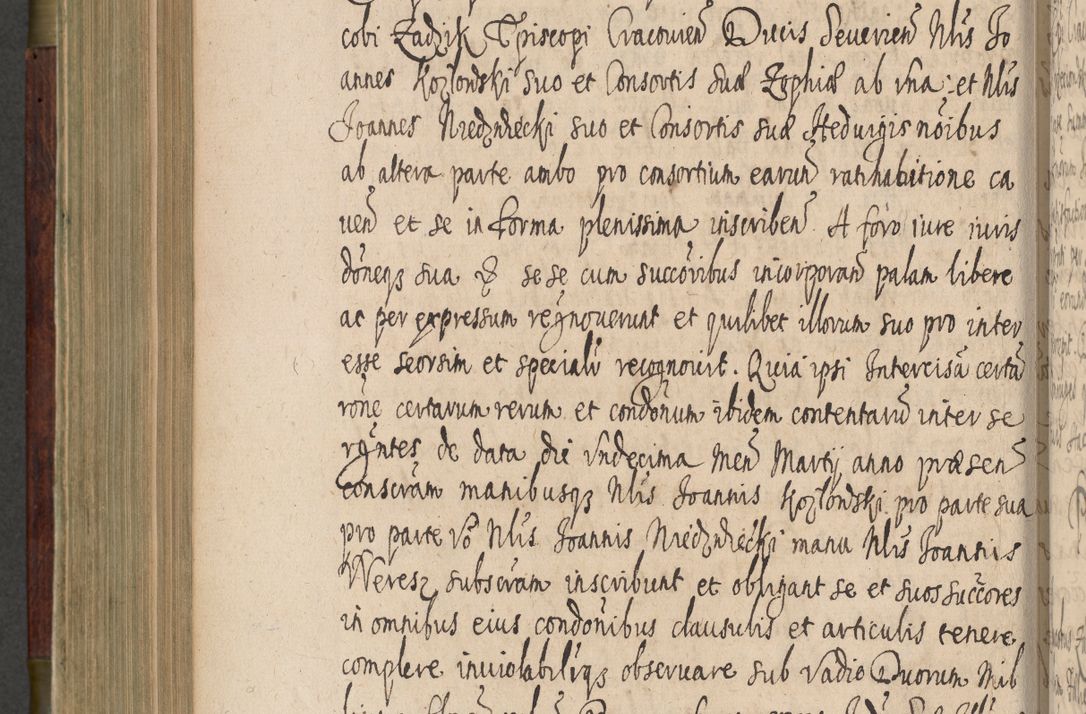 cobi Zadzik Episcopi Cracovien Ducis Severien Nlis Jo
annes Kozlonski suo et Consortis suæ Zophiæ ab vna, et Nlis
Joannes Niedzwiecki suo et Consortis suæ Hedvigis noibus
ab altera parte ambo pro consortium earum ratihabitione ca
uen et se in forma plenissima inscriben A foro iure iuris
doneqz sua sese cum succoribus incorporan palam libere
ac per expressum regnouerunt et quilibet illorum suo pro inter
esse seorsim et speciali recognouit. Quia ipsi Intercisa certa
rone certarum rerum et condonum ibidem contentaru inter se
rgntes de data die vndecima Men Martij anno præsen
conscram manibusqz Nlis Joannis Kozlonski pro parte sua
pro parte vo Nlis Joannis Niedzwiecki manu Nlis Joannis
Weresz subscram inscribunt et obligant se et suos succores
in omnibus eius condonibus clausulis et articulis tenere
complere inuiolabiliqz obseruare sub vadio Duorum Mil